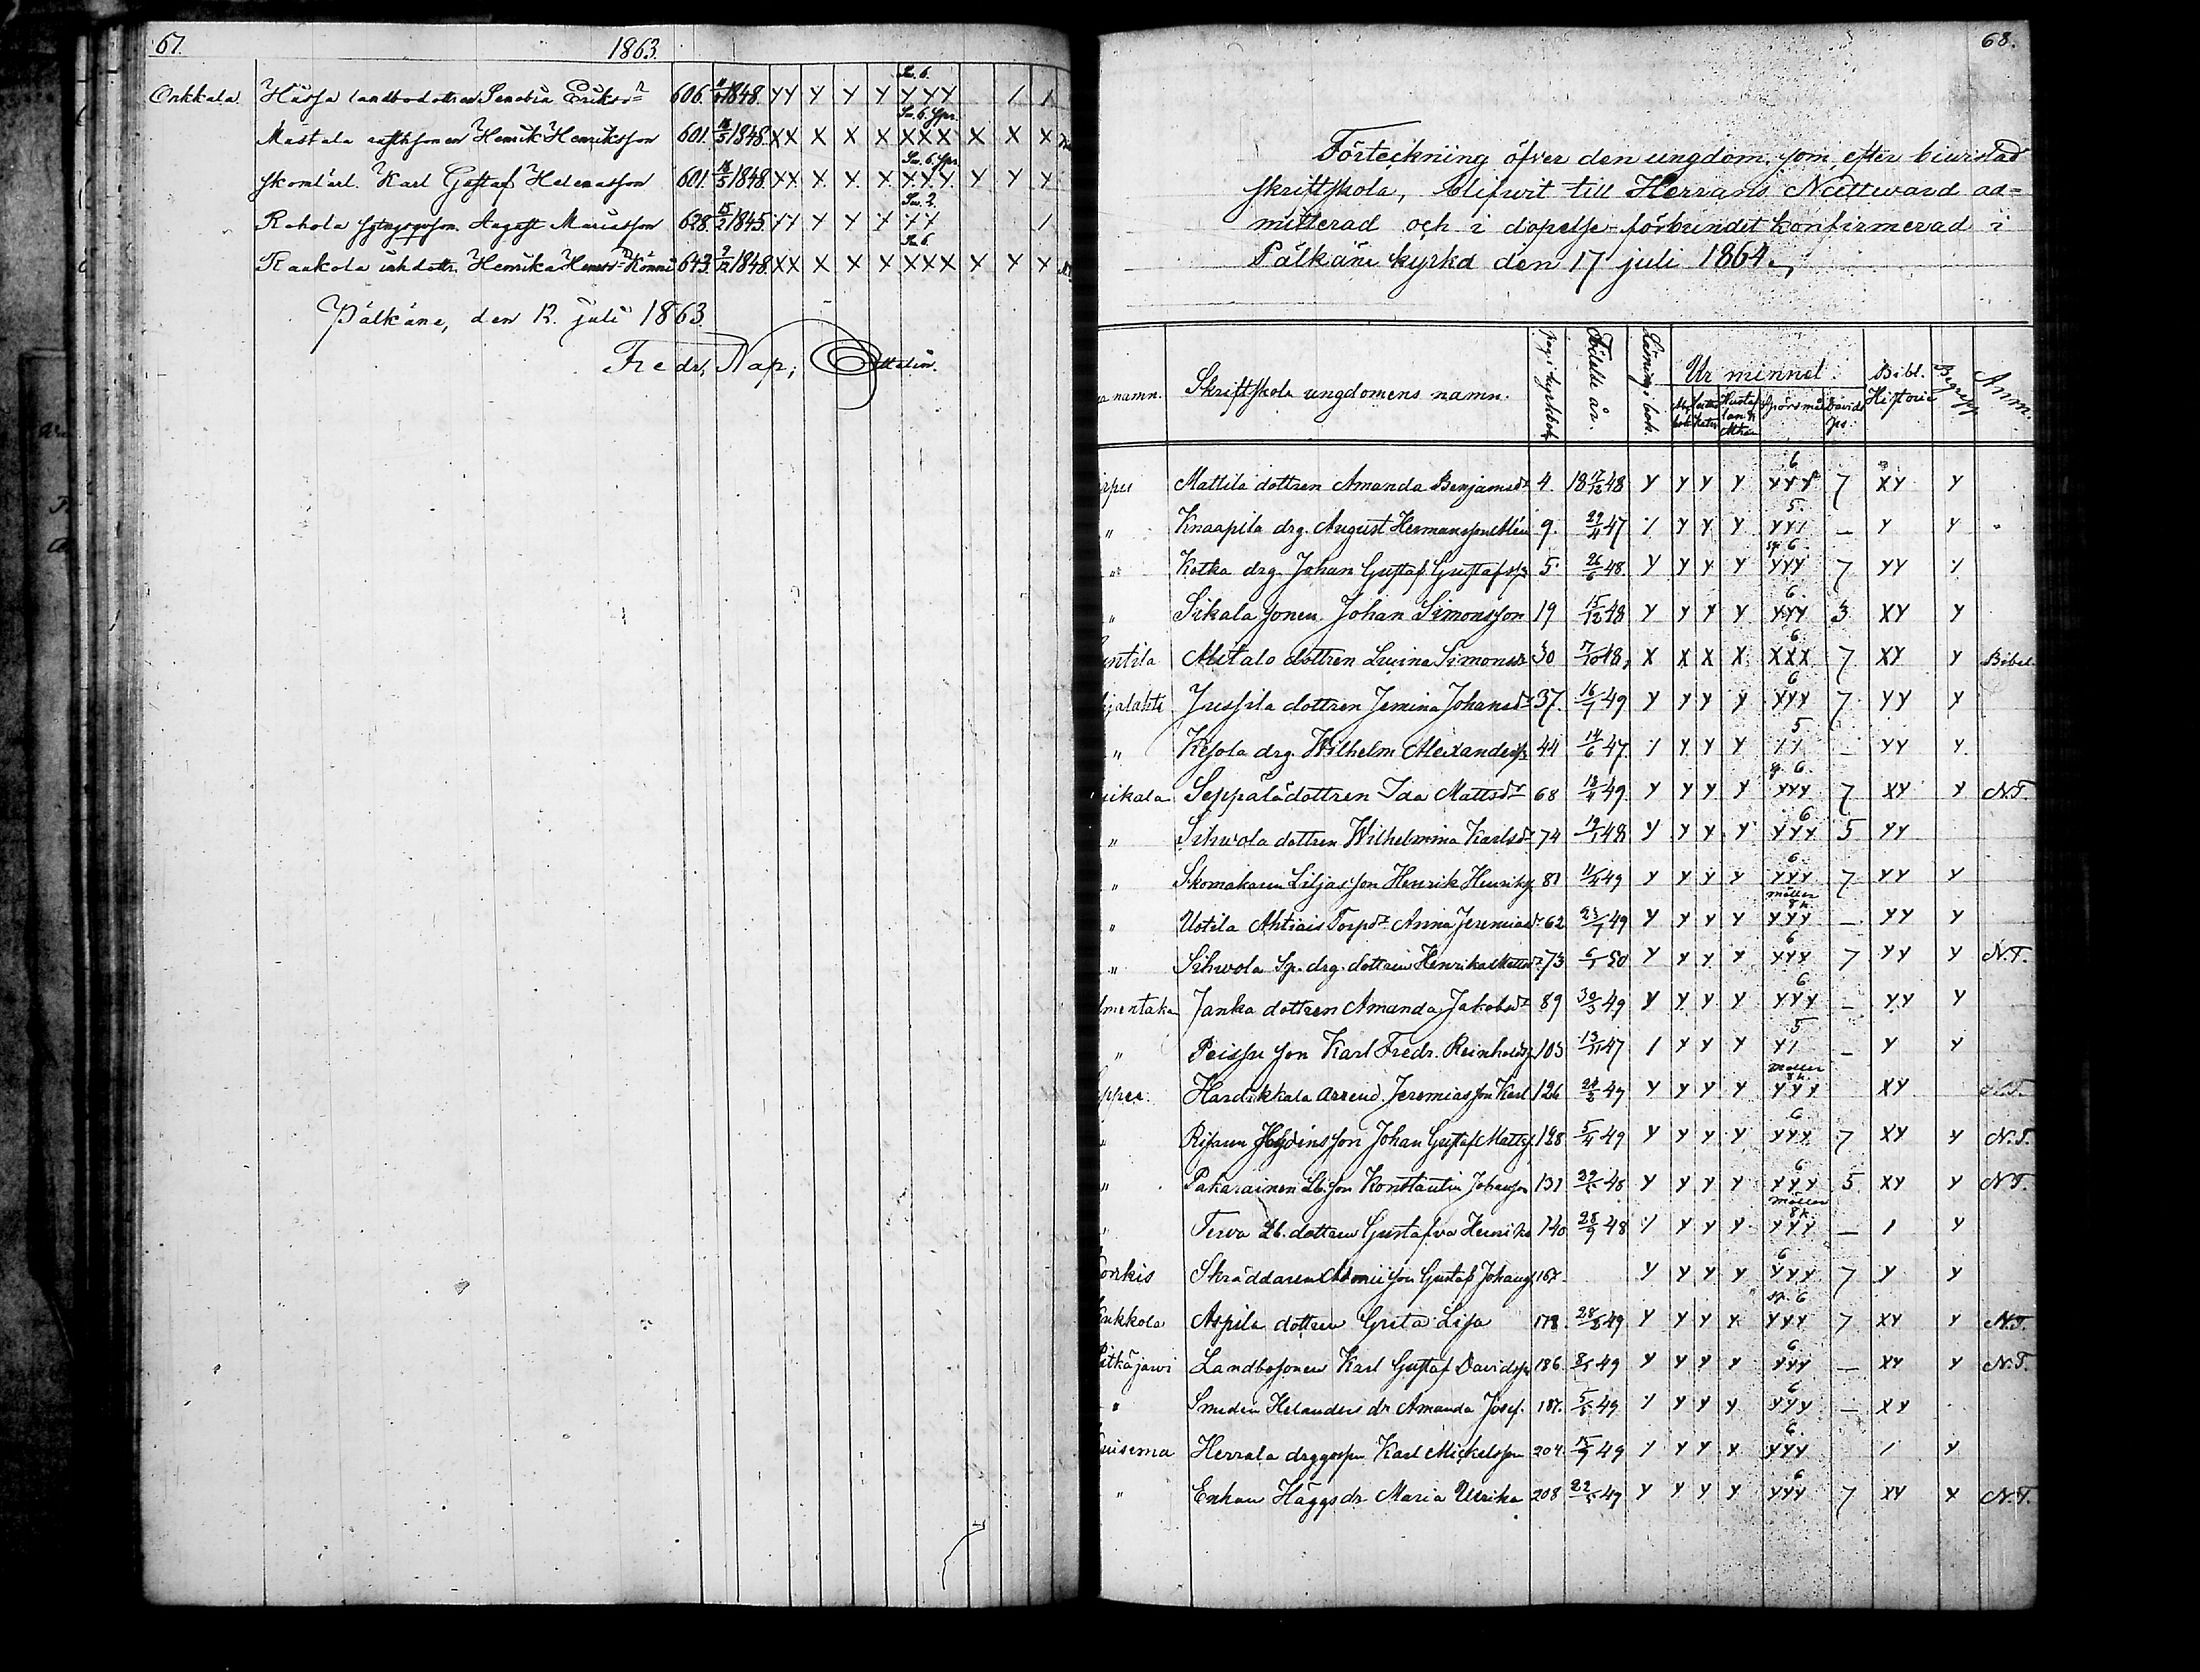 67. 1863.
Onkkala Hussa landbodottren Senobia Eriksdr 606. 1848. YY Y Y Y YYY / /
Mustala Henrik Henriksson 601. 18/5 1848. XX X X X XXX X X X
skomlärl. Karl Gustaf Helenasson 601. 18/5 1848. XX X X X YYY Y Y Y
Rahola August Mariasson 628. 15/2 1845. YY Y Y Y YY /
Raukola inhdottr. Henrika Henrsdr Könni 643. 9/12 1848. XX X X X XXX X Y Y
Pälkäne, den 12. juli 1863.
Fredr. Nap.
68.
Förteckning öfver den ungdom, som efter biwistad
skriftskola, blifwit till Herrans Nattward ad=
mitterad och i dopelse-förbundet konfirmerad i
Pälkäne kyrka den 17 juli 1864.
namn. Skriftskola ungdomens namn. pag. i kyrkbok. Födelse år. Läsning i bok. Ur minnet. Bibl. Historie Begrepp Anm.
Spörsmål Davids ps.
Mattila dottren Amanda Benjamsdr 4. 18 17/12 48 Y Y Y Y 6 YYY 7 XY Y
" Knaapila drg. August Hermansson 9. 29/4 47 / Y Y Y 5. YY/ — Y Y
" Kotka drg. Johan Gustaf Gustafss. 5. 26/6 48 Y Y Y Y sp. 6. YYY 7 YY /
" Sikala sonen Johan Simonsson 19 15/12 48 Y Y Y Y 6. YYY 3 XY Y
Alitalo dottren Lovina Simonsdr 30 17/10 48, X X X X 6. XXX 7 XY Y Bibel
Jussila dottren Jemina Johansdr 37. 16/7 49 Y Y Y Y 6 YYY 7 YY Y
" Kesola drg. Wilhelm Alexanderss. 44 14/6 47. / Y Y Y 5 YY — YY Y
Seppälädottren Ida Mattsdr 68 18/4 49. Y Y Y Y sp. 6. YYY 7 XY Y N.T.
" Sihvola dottren Wilhelmina Karlsdr 74 19/1 48 Y Y Y Y 6 YYY 5 YY
" Skomakaren Liljas son Henrik Henrikss. 81 11/4 49 Y Y Y Y 6. YYY 7 YY Y
" Uotila Ahtiais Torpdr Anna Jeremiasdr 62 23/7 49 Y Y Y Y möller 8 k. YYY — YY Y
" Sihvola Sp. drg. dottren Henrika Mattsdr 73 6/1 50 Y Y Y Y 6 YYY 7 YY Y N.T.
Janka dottren Amanda Jakobsdr 89 30/3 49 Y Y Y Y 6 YYY — YY Y
" Peissu son Karl Fredr. Reinholdss. 103 13/11 47 / Y Y Y 5 Y/ — Y Y
Hardikkala arrend. Jeremias son Karl 126 24/2 47 Y Y Y Y möller 8 k. YYY XY N.T.
son Johan Gustaf Mattss. 128 5/4 49 Y Y Y Y 6 YYY 7 XY Y N.T.
" Pakarainen Lb. son Konstantin Johansson 131 48 Y Y Y Y 6 YYY 5 XY Y N.T.
Terva Lb. dottren Gustafva Henriks 140 28/9 48 / Y Y Y möller 8 k. YYY — / Y
Skräddaren son Gustaf Johans 167. Y Y Y Y 6 YYY 7 Y Y
Aspila dottren Greta Lisa 178. 28/8 49 Y Y Y X sp. 6 YYY 7 XY Y N.T.
Pitkäjärwi Landbosonen Karl Gustaf Davidss. 186 49 Y Y Y Y 6 YYY — XY Y N.T.
" Smeden Helanders dr Amanda Josef. 187. 49 / Y Y Y 6 YYY — XY
Herrala Karl Mickelsson 204. 49 / Y Y X 6. YYY / Y
" Enkan Häggs dr Maria Ulrika 208 49 Y Y Y Y 6 YYY 7 XY X N.T.